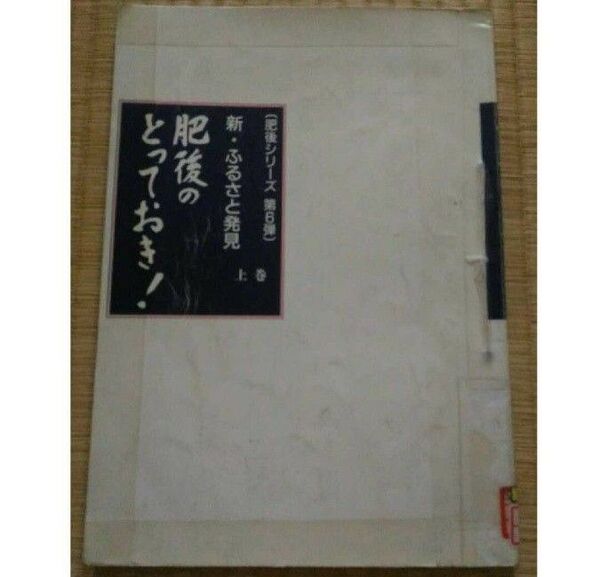 〔肥後シリーズ 第6弾〕
新・ふるさと発見
上巻
肥後の
とっておき!